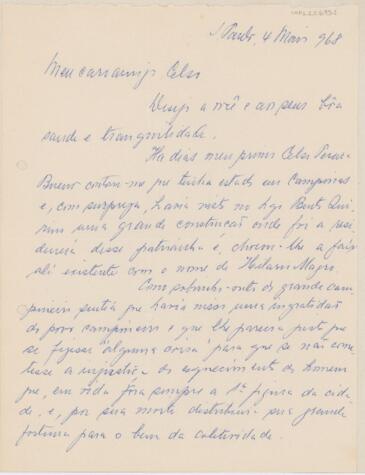 S Paulo, 4 Maio 968
Meu caro amigo Celso
Desejo a você e aos seus bôa
saude e tranquilidade.
Ha dias meu primo Celso
Bueno contou-me que tinha estado em Campinas
e, com surpreza, havia visto no Lgo Bento Qui
rino uma grande construcão onde foi a resi
dencia desse patriarcha e, chocou-lhe a faixa
ali existente com o nome de Hilario Magro.
Como sobrinho-neto do grande cam
pineiro sentiu que havia nisso uma ingratidão
do povo campineiro e que lhe parecia justo que
se fizesse "alguma coisa" para que se não come
tesse a injustiça do esquecimento do homem
que, em vida fôra sempre a 1ª figura da cida
de, e, por sua morte distribuiu sua grande
fortuna para o bem da coletividade.